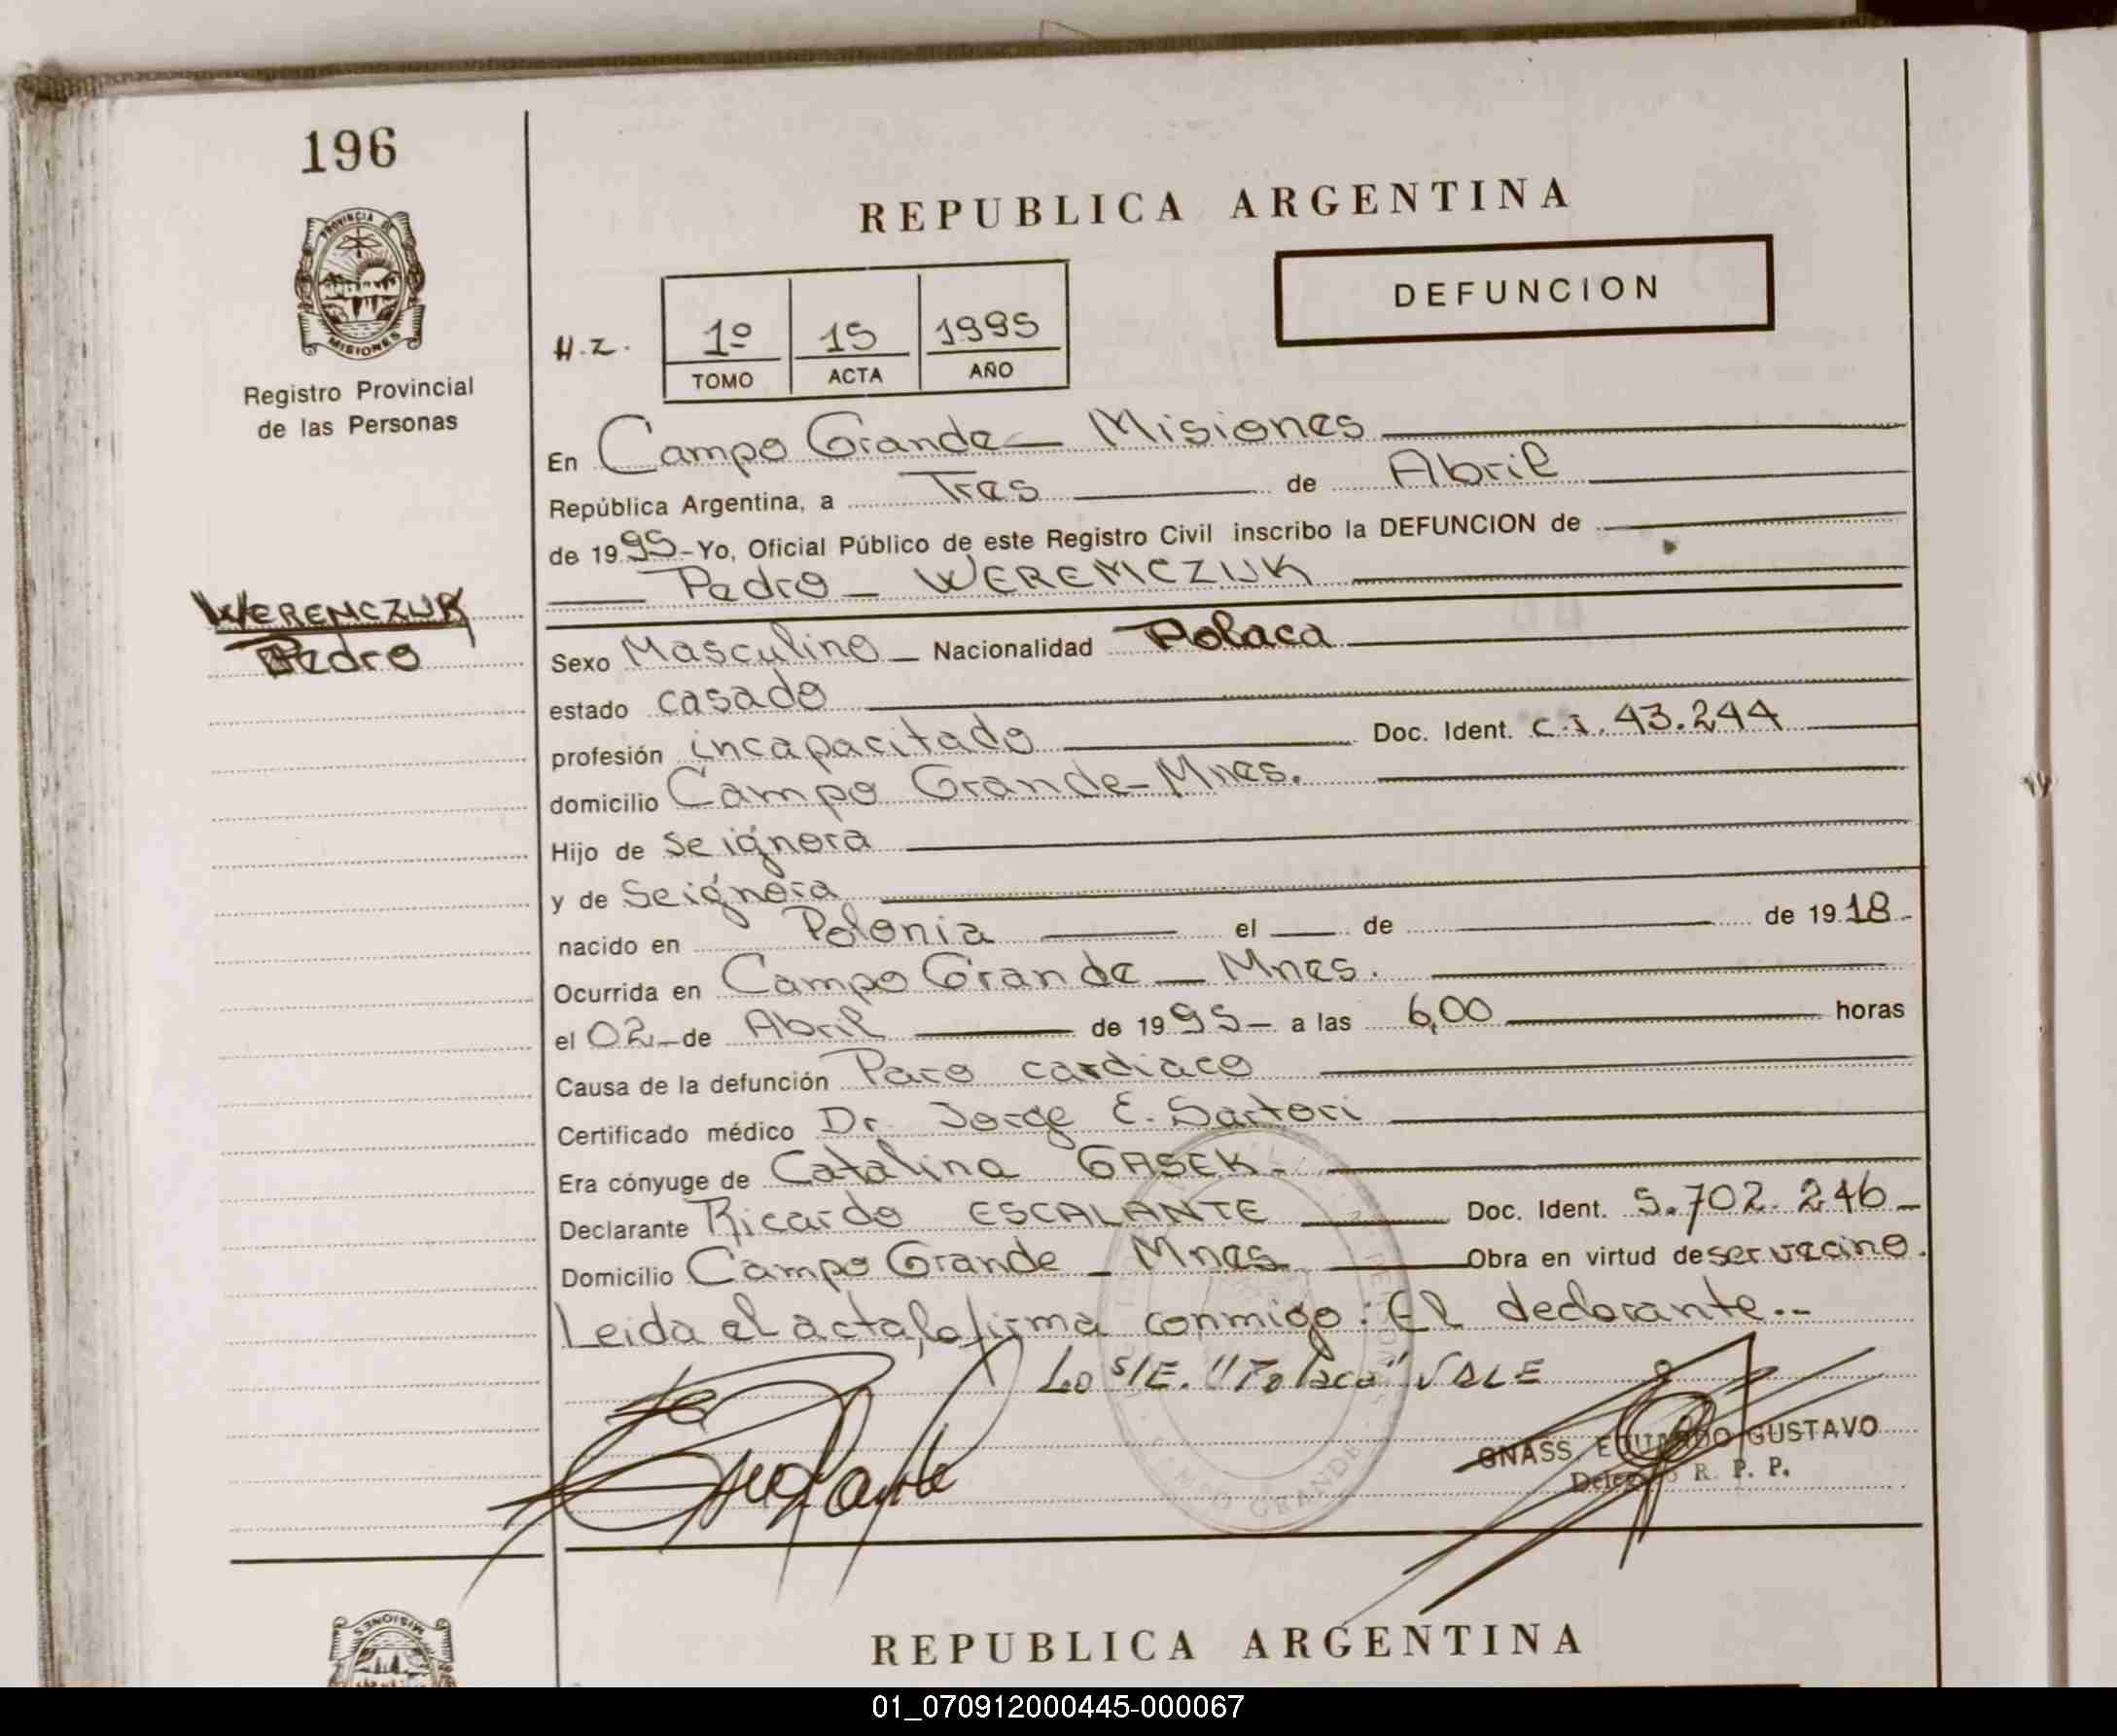 196
PROVINCIA DE
MISIONES
Registro Provincial
de las Personas
WEREMCZUK
Pedro
REPUBLICA ARGENTINA
DEFUNCION
H.Z.
1º 15 1995
TOMO ACTA AÑO
En Campo Grande - Misiones
República Argentina, a Tres de Abril
de 1995 - Yo, Oficial Público de este Registro Civil inscribo la DEFUNCION de
Pedro - WEREMCZUK
Sexo Masculino - Nacionalidad Polaca
estado casado
profesión incapacitado Doc. Ident. C.I. 43.244
domicilio Campo Grande - Mnes.
Hijo de Se ignora
y de Se ignora
nacido en Polonia el de de 1918 -
Ocurrida en Campo Grande - Mnes.
el 02 - de Abril de 1995 - a las 6,00 horas
Causa de la defunción Paro cardiaco
Certificado médico Dr. Jorge E. Sartori
Era cónyuge de Catalina GASEK.
Declarante Ricardo ESCALANTE Doc. Ident. 5.702.246 -
Domicilio Campo Grande - Mnes Obra en virtud de ser vecino.
Leida el acta, la firma conmigo: El declarante..
Lo S/E. "Polaca" VALE
GNASS, EDUARDO GUSTAVO
Delegado R. P. P.
CAMPO GRANDE
MISIONES
REPUBLICA ARGENTINA
01_070912000445-000067